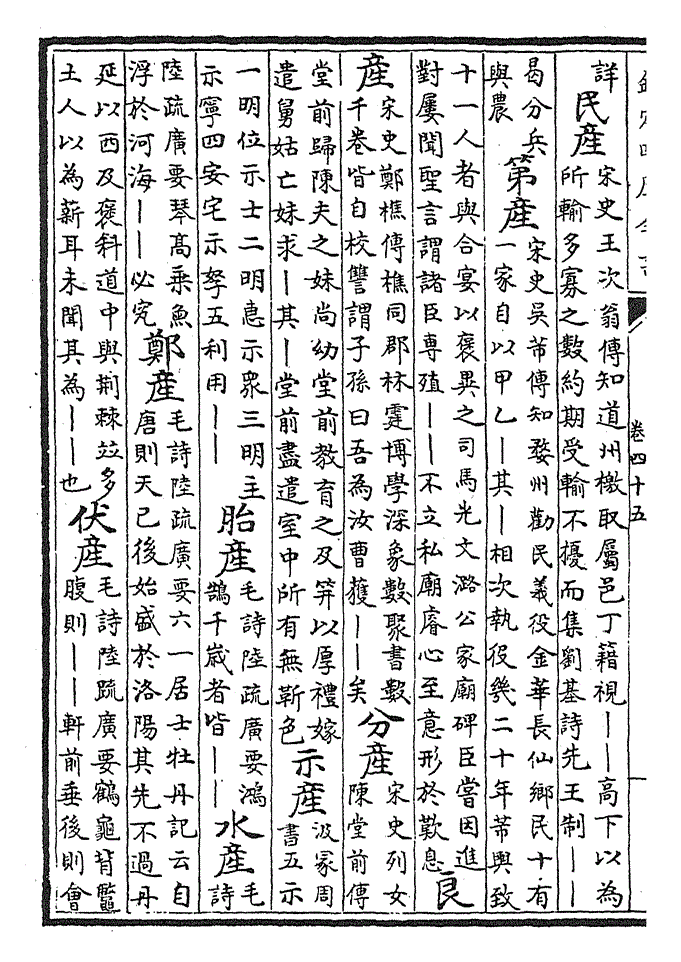 卷四十五
詳
民產
宋史王次翁傳知道州檄取屬邑丁籍視——高下以為
所輸多寡之數約期受輸不擾而集劉基詩先王制——
曷分兵
與農
第產
宋史吳芾傳知婺州勸民義役金華長仙鄉民十有
一家自以甲乙—其—相次執役幾二十年芾與致
十一人者與合宴以褒異之司馬光文潞公家廟碑臣嘗因進
對屢聞聖言謂諸臣專殖——不立私廟睿心至意形於歎息
良
產
宋史鄭樵傳樵同郡林霆博學深象數聚書數
千卷皆自校讐謂子孫曰吾為汝曹獲——矣
分產
宋史列女
陳堂前傳
堂前歸陳夫之妹尚幼堂前教育之及筓以厚禮嫁
遣舅姑亡妹求—其—堂前盡遣室中所有無靳色
示產
汲冢周
書五示
一明位示士二明惪示衆三明主
示寧四安宅示孥五利用——
胎產
毛詩陸疏廣要鴻
鵠千歲者皆——
水產
毛
詩
陸疏廣要琴髙乗魚
浮於河海——必究
鄭產
毛詩陸疏廣要六一居士牡丹記云自
唐則天已後始盛於洛陽其先不過丹
延以西及褒科道中與荆棘竝多
土人以為薪耳未聞其為——也
伏產
毛詩陸疏廣要鶴龜背鼈
腹則——軒前垂後則會